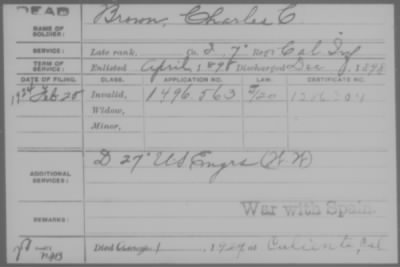 DEAD
NAME OF SOLDIER: Brown, Charles C
SERVICE: Late rank, Co. I. 7" Reg't Cal Inf
TERM OF SERVICE: Enlisted April, 1898 Discharged Dec, 1898
DATE OF FILING. CLASS. APPLICATION NO. LAW. CERTIFICATE NO.
1924 Feb 28 Invalid, 1496.563 1286204
Widow,
Minor,
ADDITIONAL SERVICES: D 27" US Engrs (W W)
REMARKS: War with Spain.
Died 1, 1927, at Caliente, Cal